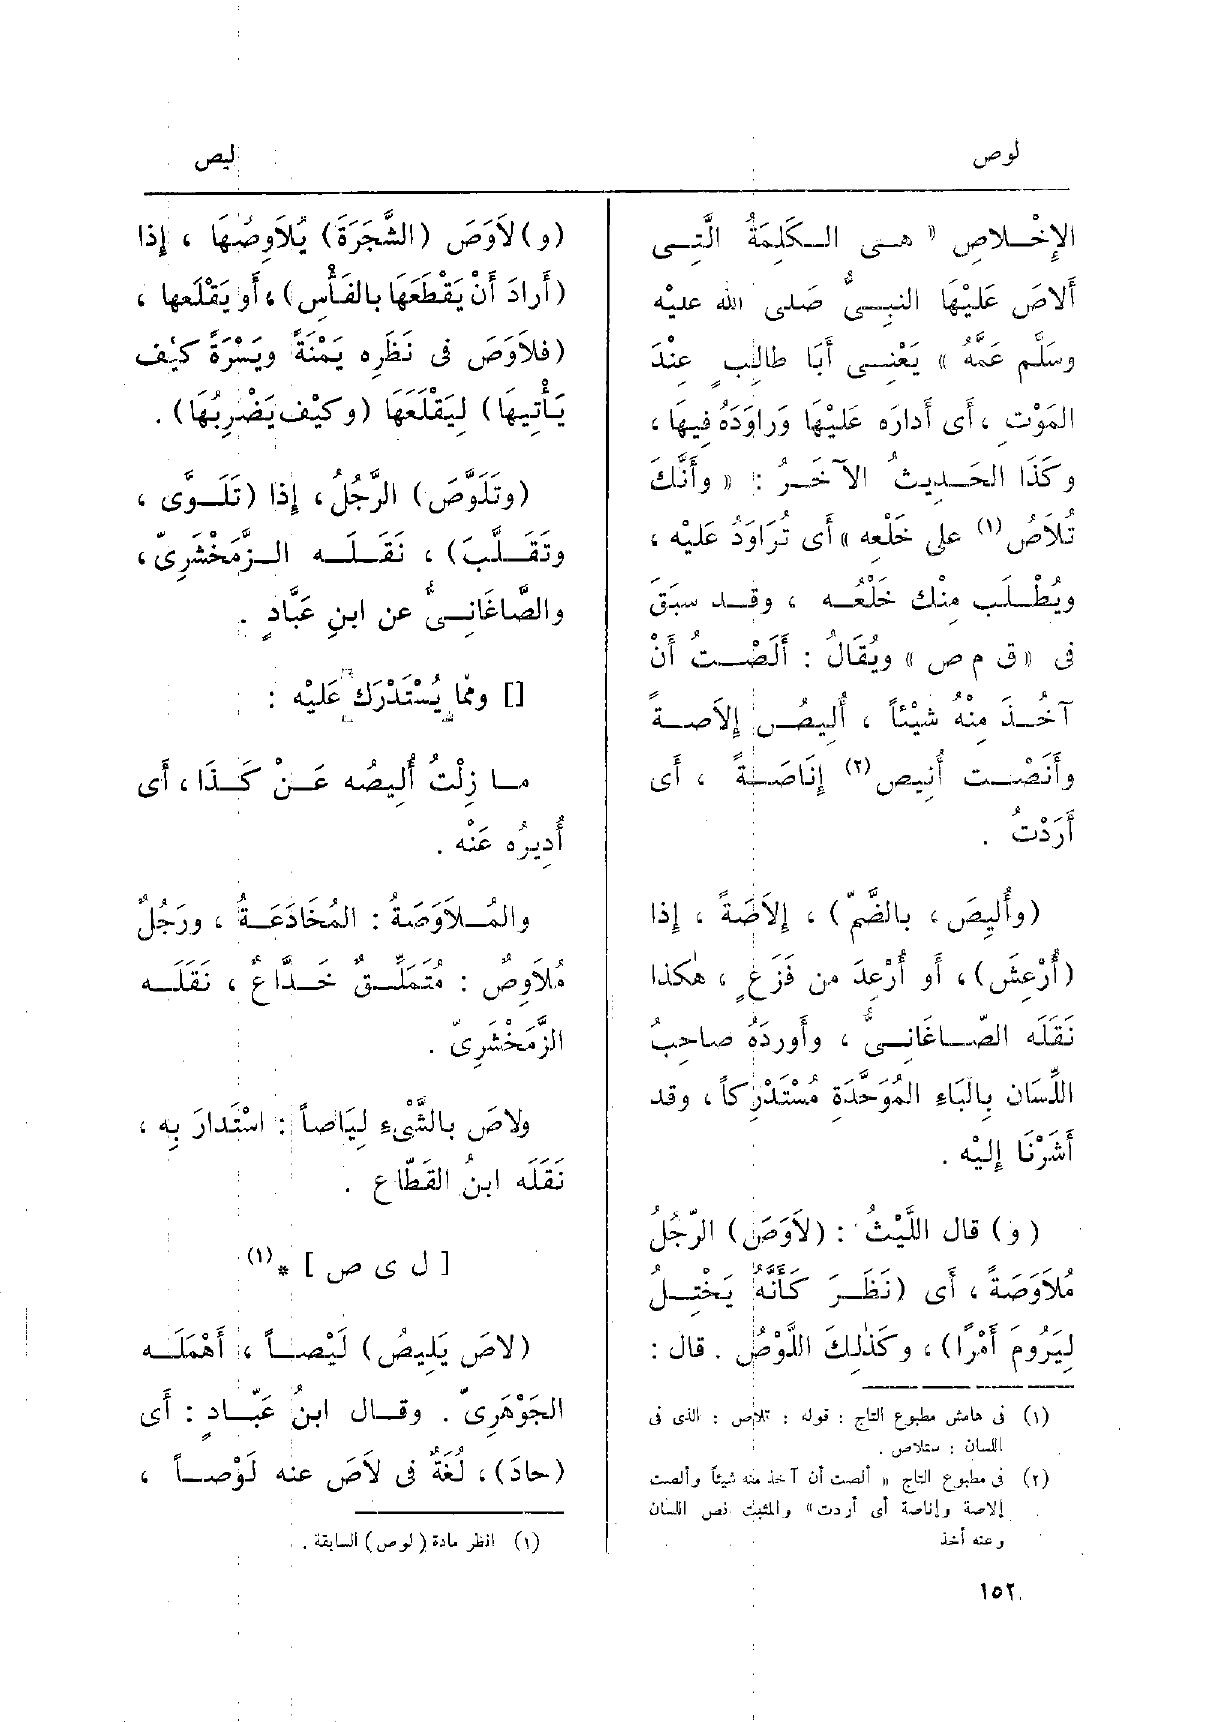 لوص
ليص
الإِخْلاصِ « هى الكَلِمَةُ الَّتِى
أَلاصَ عَلَيْهَا النبِىُّ صَلى الله عليه
وسَلَّم عَمَّهُ » يَعْنِى أَبَا طالِبٍ عِنْدَ
المَوْتِ ، أَى أَدارَه عَلَيْهَا وَرَاوَدَهُ فِيهَا ،
وكَذَا الحَدِيثُ الآخَرُ : « وأَنَّكَ
تُلاَصُ (١) على خَلْعِه » أَى تُرَاوَدُ عَلَيْه ،
ويُطْلَب مِنْك خَلْعُه ، وقد سبَقَ
فى « ق م ص » ويُقَالُ : أَلَصْتُ أَنْ
آخُذَ مِنْهُ شَيْئاً ، أُلِيصُ إِلاَصةً
وأَنَصْت أُنِيص (٢) إِنَاصَةً ، أَى
أَرَدْتُ .
(وأُلِيصَ ، بالضَّمّ) ، إِلاَصَةً ، إذا
(أُرْعِشَ) ، أَو أُرْعِدَ من فَزَعٍ ، هٰكذا
نَقَلَه الصّاغَانِىُّ ، وأَوردَهُ صاحِبُ
اللِّسَان بِالبَاءِ المُوَحَّدَةِ مُسْتَدْرِكاً ، وقد
أَشَرْنَا إِلَيْه .
(و) قال اللَّيْثُ : (لاَوَصَ) الرّجُلُ
مُلاَوَصَةً ، أَى (نَظَرَ كَأَنَّهُ يَخْتِلُ
لِيَرُومَ أَمْرًا) ، وكَذٰلِكَ اللَّوْصُ . قال :
(١) فى هامش مطبوع التاج : قوله : تلاص : الذى فى
اللسان : ستلاص .
(٢) فى مطبوع التاج « ألصت أن آخذ منه شيئاً وألصت
إلاصة وإناصة أى أردت » والمثبت نص اللسان
وعنه أخذ
(و) لاَوَصَ (الشَّجَرَةَ) يُلاَوِصُهَا ، إذا
(أَرادَ أَنْ يَقْطَعَهَا بالفَأْسِ) ، أَو يَقْلَعها ،
(فلاَوَصَ فى نَظَرِه يَمْنَةً ويَسْرَةً كَيْف
يَأْتِيهَا) لِيَقْلَعَهَا (وكَيْف يَضْرِبُهَا) .
(وتَلَوَّصَ) الرَّجُلُ ، إذا (تَلَوَّى ،
وتَقَلَّبَ) ، نَقَلَه الزَّمَخْشَرِىّ ،
والصَّاغَانِىُّ عن ابنِ عَبَّادٍ .
[] ومما يُسْتَدْرَك عَلَيْه :
ما زِلْتُ أُلِيصُه عَنْ كَذَا ، أَى
أُدِيرُه عَنْه .
والمُلاَوَصَةُ : المُخَادَعَةُ ، ورَجُلٌ
مُلاَوِصٌ : مُتَمَلِّقٌ خَدَّاعٌ ، نَقَلَه
الزَّمَخْشَرِىّ .
ولاصَ بالشَّىْءِ لِيَاصاً : اسْتَدارَ بِه ،
نَقَلَه ابنُ القَطَّاع .
[ ل ى ص ] * (١)
(لاصَ يَلِيصُ) لَيْصاً ، أَهْمَلَه
الجَوْهَرِىّ . وقال ابنُ عَبَّادٍ : أَى
(حادَ) ، لُغَةٌ فى لاَصَ عنه لَوْصاً ،
(١) انظر مادة (لوص) السابقة .
١٥٢